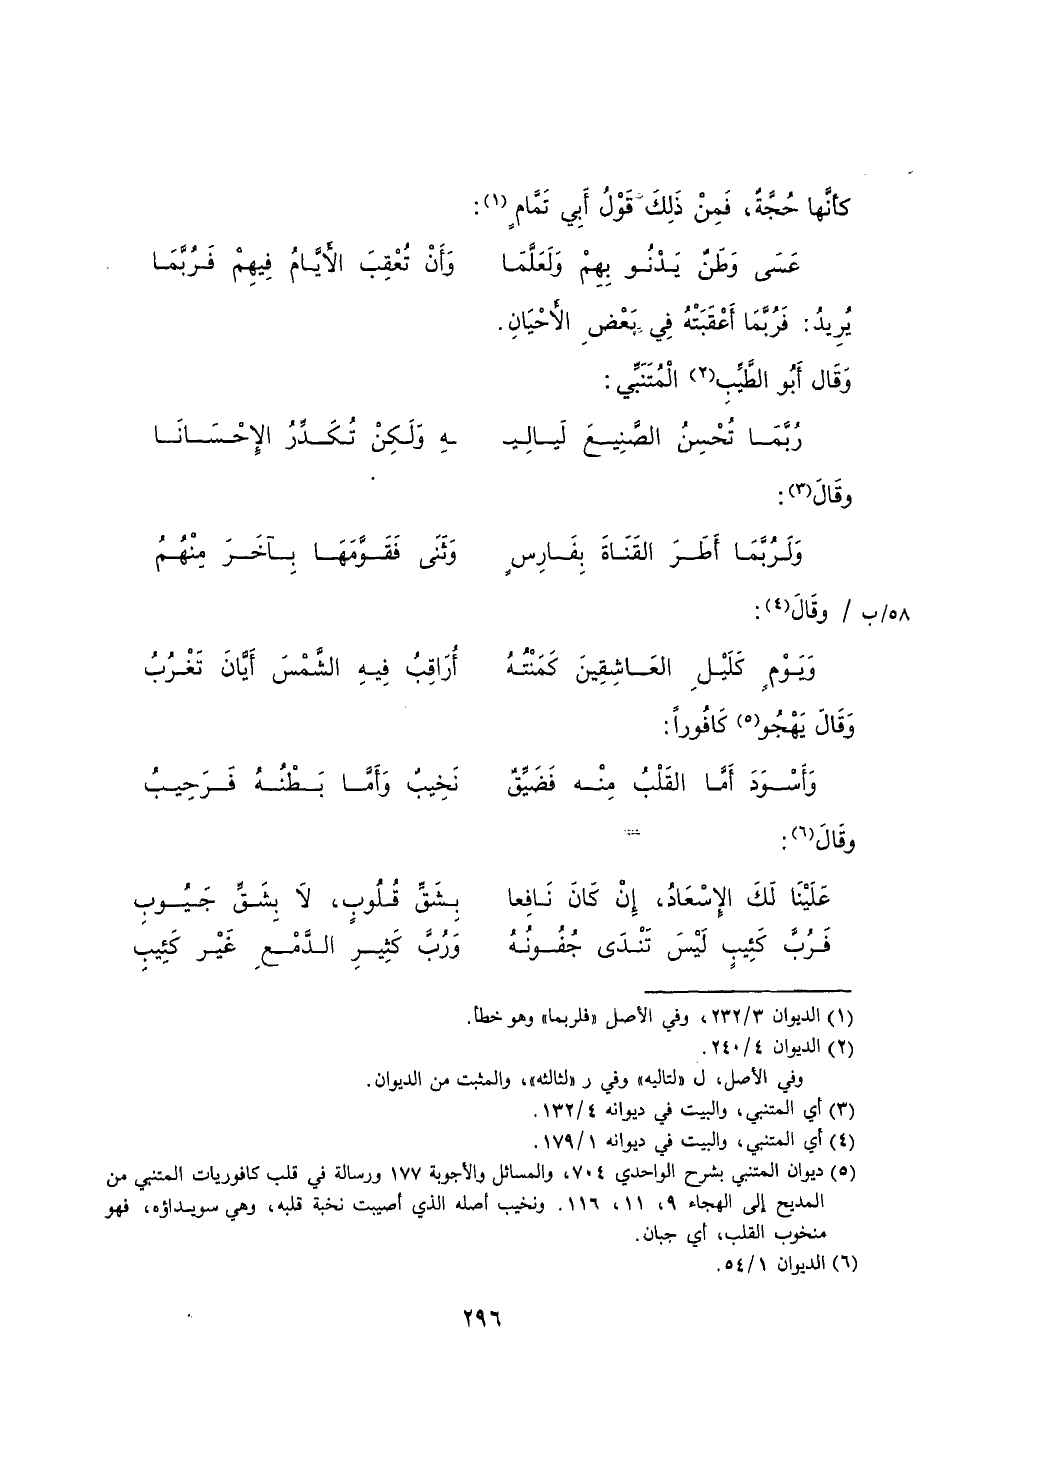 كأنَّها حُجَّةٌ، فَمِنْ ذَلِكَ قَوْلُ أَبِي تَمَّامٍ(١):
عَسَى وَطَنٌ يَدْنُو بِهِمْ وَلَعَلَّمَا وَأَنْ تُعْقِبَ الأَيَّامُ فِيهِمْ فَرُبَّمَا
يُرِيدُ: فَرُبَّمَا أَعْقَبَتْهُ فِي بَعْضِ الأَحْيَانِ.
وَقَال أَبُو الطَّيِّبِ(٢) الْمُتَنَبِّي:
رُبَّمَا تُحْسِنُ الصَّنِيعَ لَيَالِيـ ـهِ وَلَكِنْ تُكَدِّرُ الإِحْسَانَا
وقَالَ(٣):
وَلَرُبَّمَا أَطَرَ القَنَاةَ بِفَارِسٍ وَثَنَى فَقَوَّمَهَا بِآخَرَ مِنْهُمُ
٥٨/ب / وقَالَ(٤):
وَيَوْمٍ كَلَيْلِ العَاشِقِينَ كَمَنْتُهُ أُرَاقِبُ فِيهِ الشَّمْسَ أَيَّانَ تَغْرُبُ
وَقَالَ يَهْجُو(٥) كَافُوراً:
وَأَسْوَدَ أَمَّا القَلْبُ مِنْه فَضَيِّقٌ نَخِيبٌ وَأَمَّا بَطْنُهُ فَرَحِيبُ
وقَالَ(٦):
عَلَيْنَا لَكَ الإِسْعَادُ، إِنْ كَانَ نَافِعا بِشَقِّ قُلُوبٍ، لاَ بِشَقِّ جَيُوبِ
فَرُبَّ كَئِيبٍ لَيْسَ تَنْدَى جُفُونُهُ وَرُبَّ كَثِيرِ الدَّمْعِ غَيْر كَئِيبِ
(١) الديوان ٢٣٢/٣، وفي الأصل «فلربما» وهو خطأ.
(٢) الديوان ٢٤٠/٤.
وفي الأصل، ل «لتاليه» وفي ر «لثالثه»، والمثبت من الديوان.
(٣) أي المتنبي، والبيت في ديوانه ١٣٢/٤.
(٤) أي المتنبي، والبيت في ديوانه ١٧٩/١.
(٥) ديوان المتنبي بشرح الواحدي ٧٠٤، والمسائل والأجوبة ١٧٧ ورسالة في قلب كافوريات المتنبي من
المديح إلى الهجاء ٩، ١١، ١١٦. ونخيب أصله الذي أصيبت نخبة قلبه، وهي سويداؤه، فهو
منخوب القلب، أي جبان.
(٦) الديوان ٥٤/١.
٢٩٦